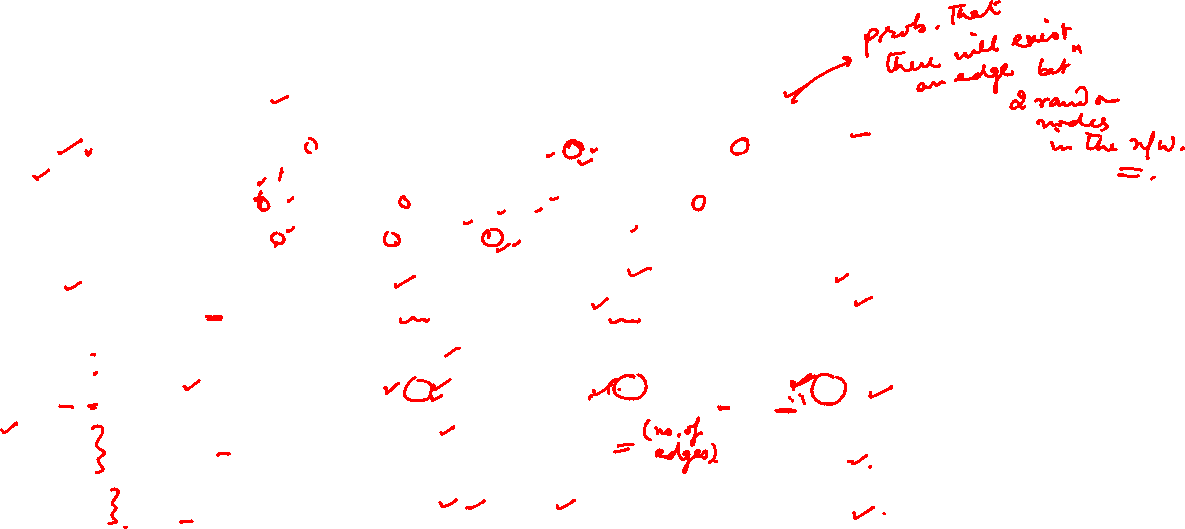 prob. That
there will exist
an edge betⁿ
2 random
nodes
in the n/w.
(no. of
edges)